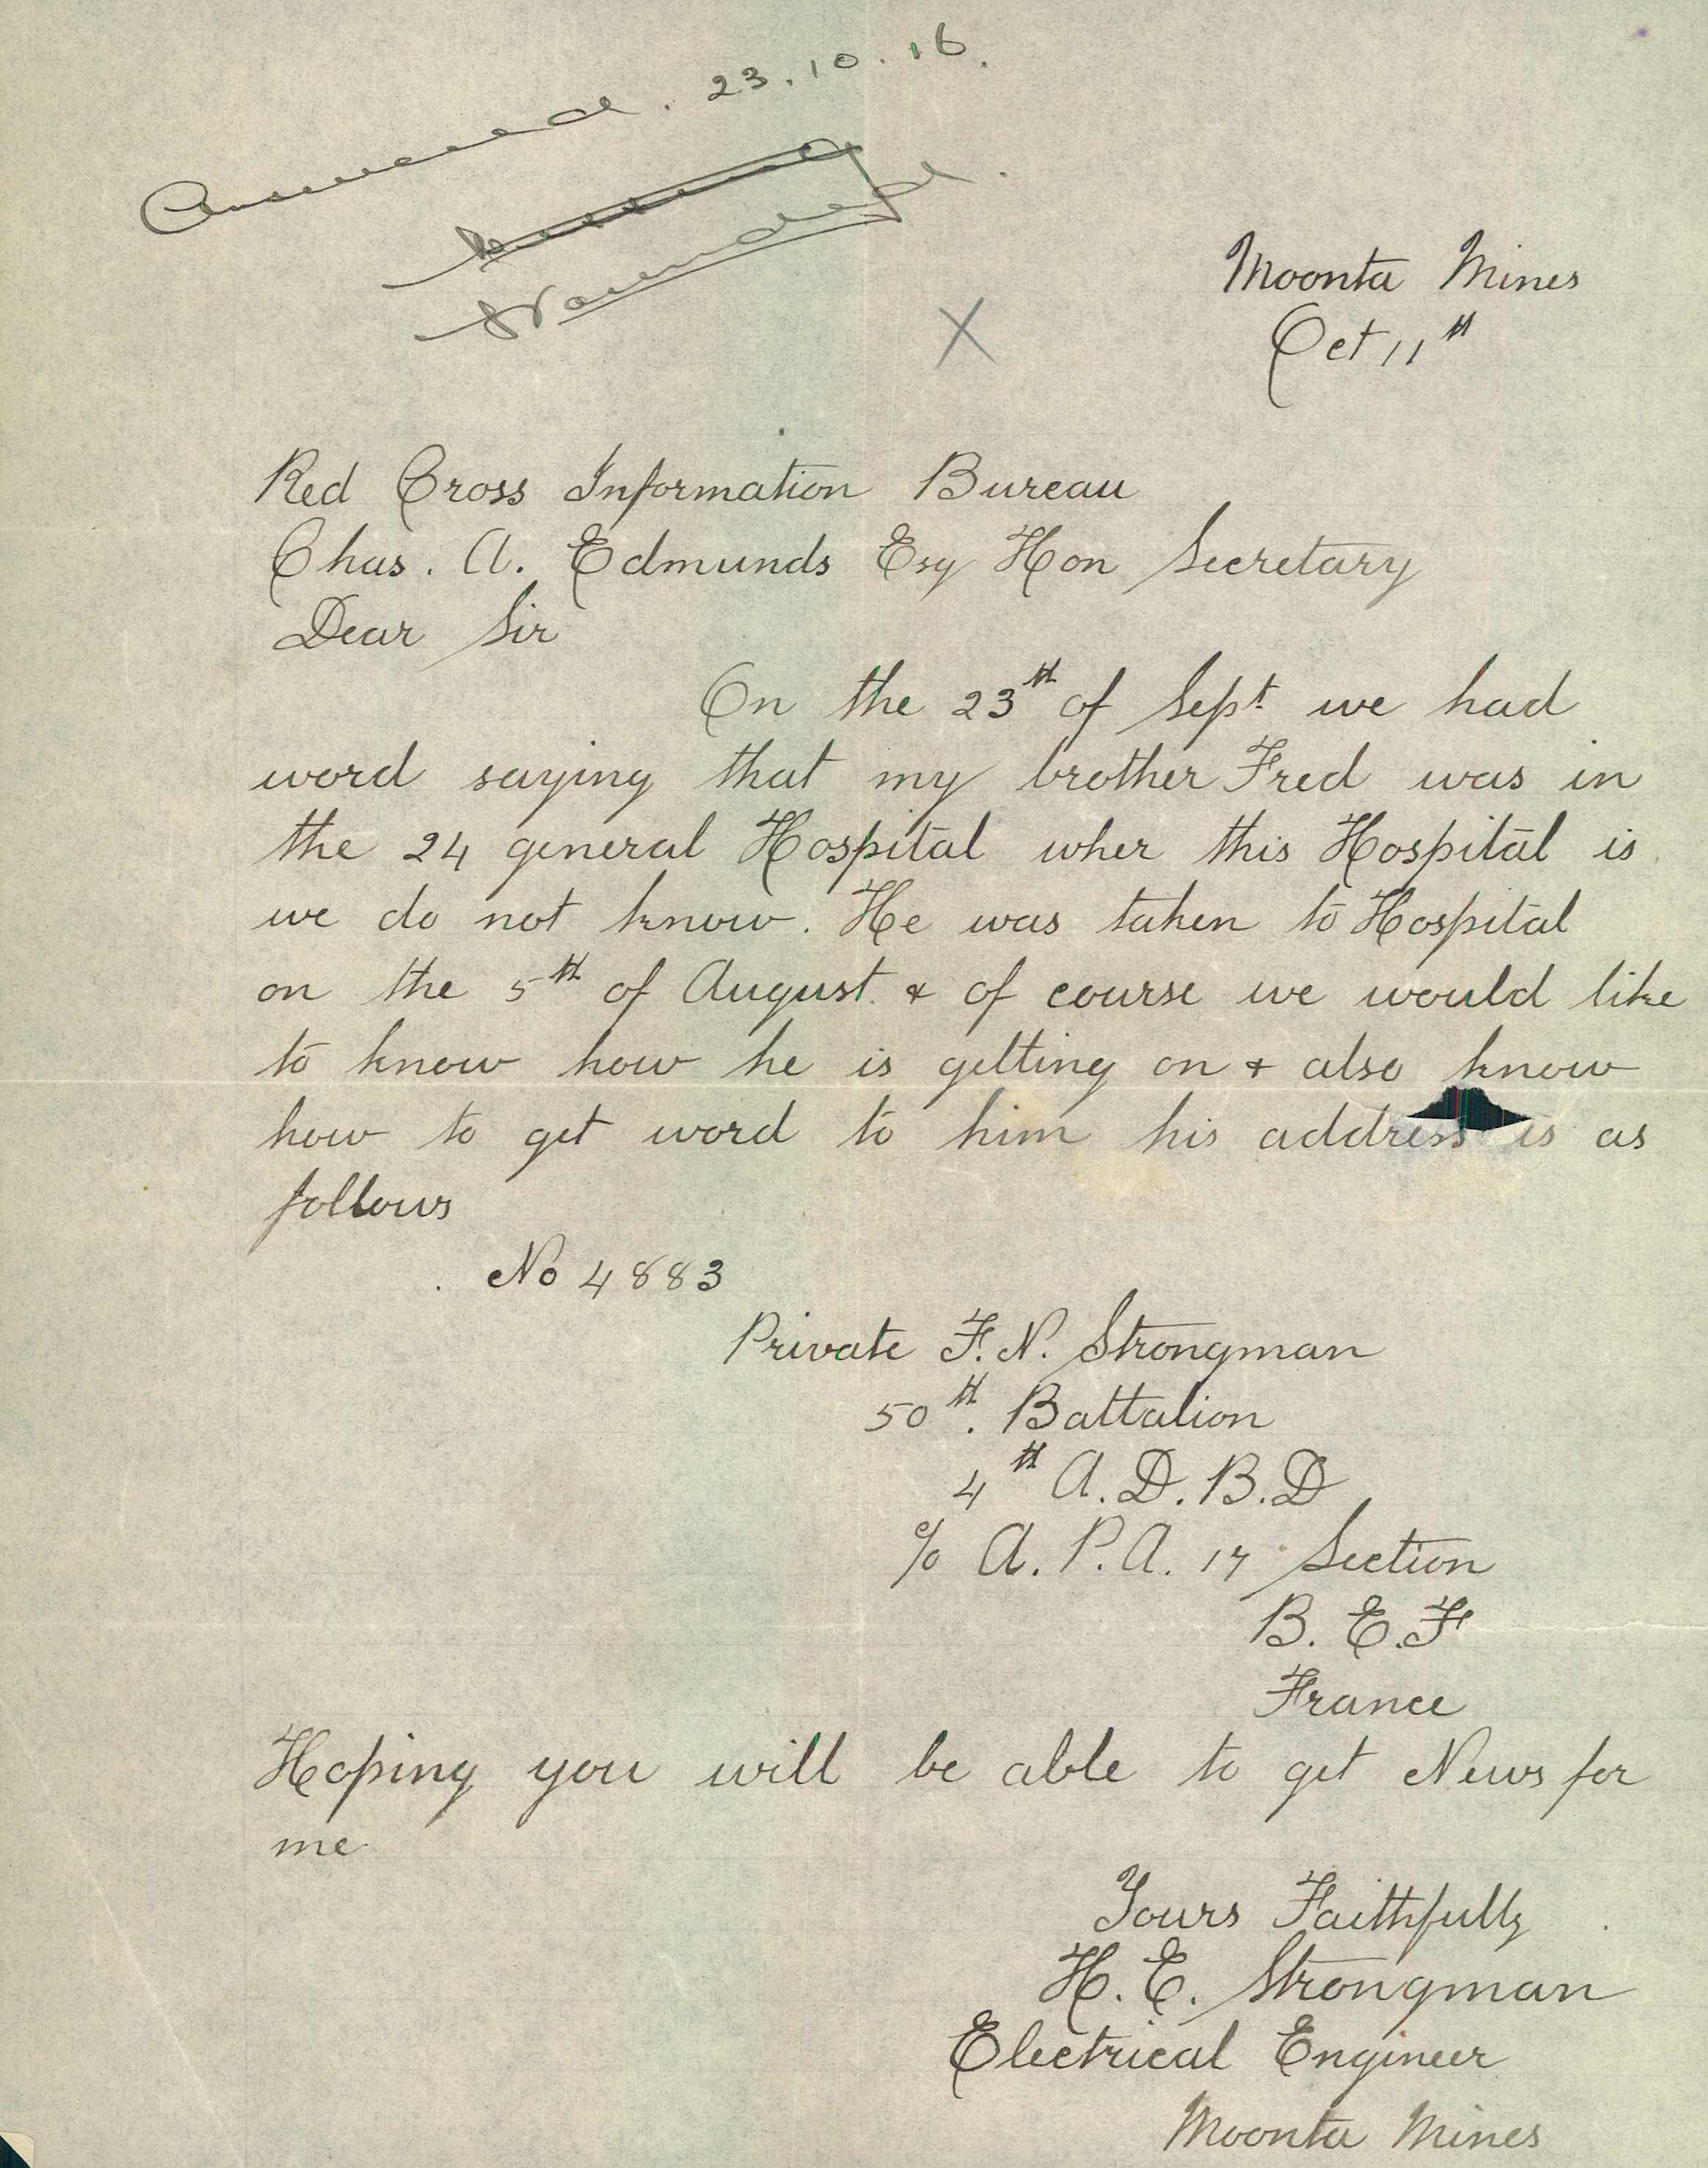 Answered. 23.10.16.
Wounded.
X
Moonta Mines
Oct 11th
Red Cross Information Bureau
Chas. A. Edmunds Esq Hon Secretary
Dear Sir
On the 23th of Sept we had
word saying that my brother Fred was in
the 24 general Hospital wher this Hospital is
we do not know. He was taken to Hospital
on the 5th of August. & of course we would like
to know how he is getting on & also know
how to get word to him his address is as
follows
No 4883
Private F. N. Strongman
50th. Battalion
4th A. D. B. D
c/o A. P. A. 17 Section
B. E. F
France
Hoping you will be able to get News for
me
Yours Faithfully
H. E. Strongman
Electrical Engineer
Moonta Mines